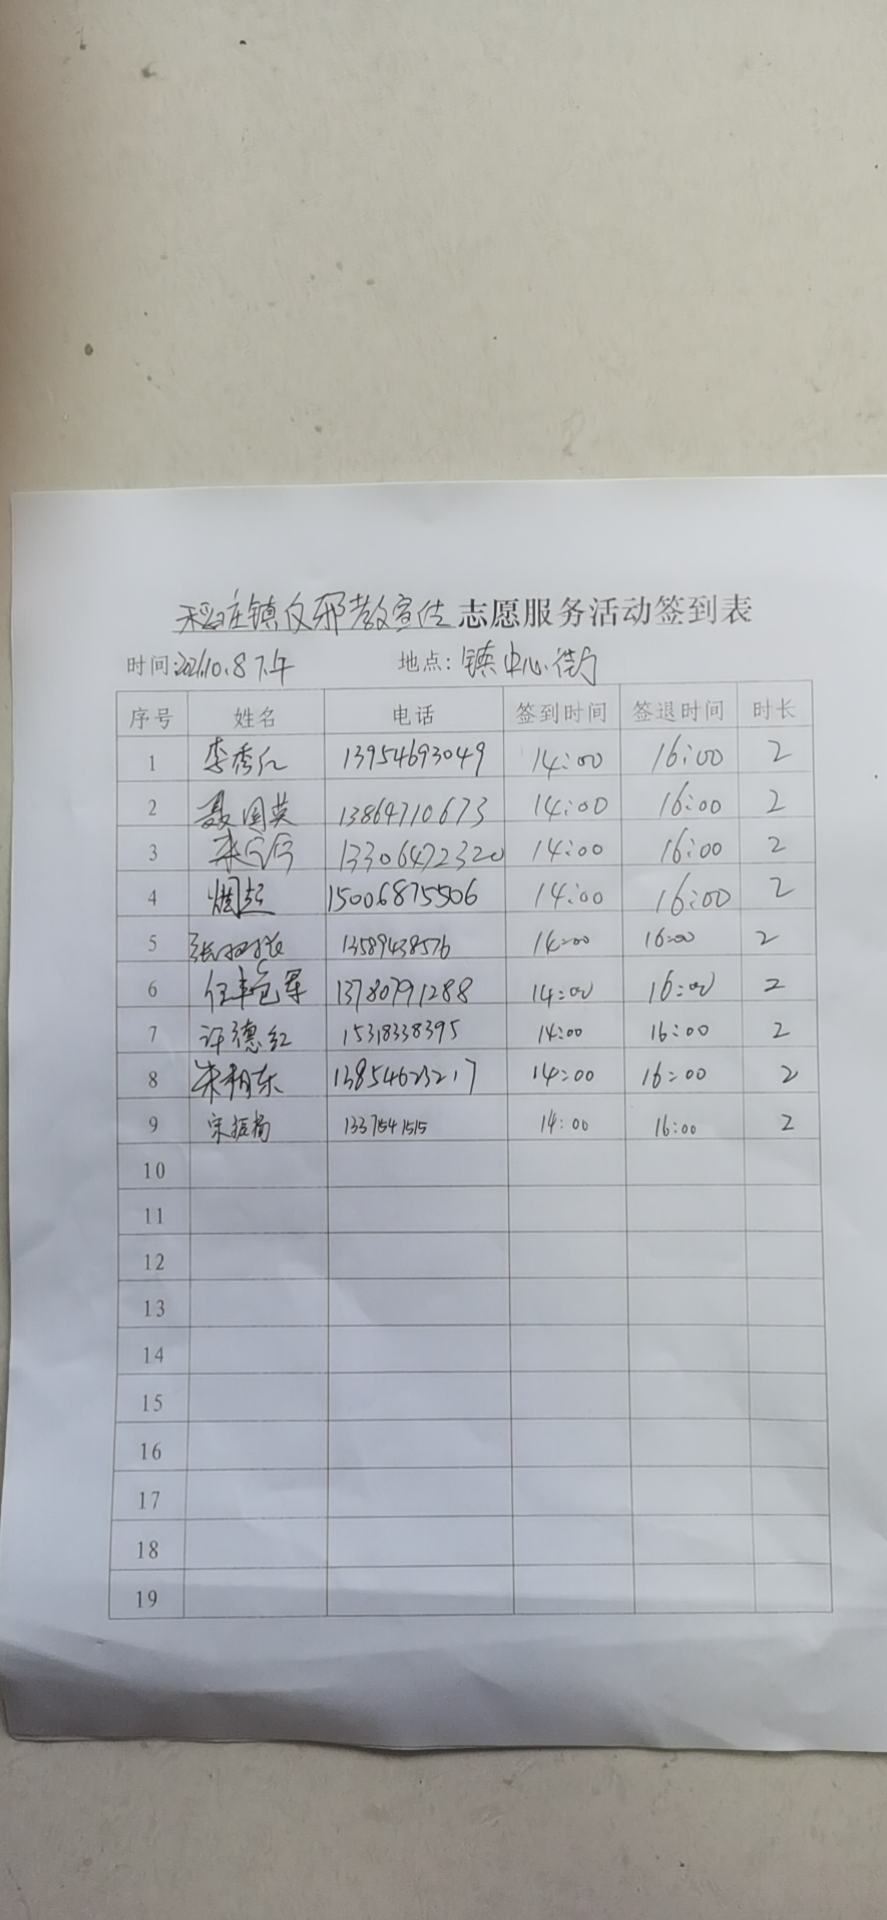 稻庄镇反邪教宣传志愿服务活动签到表
时间:2021.10.8下午 地点:镇中心街
序号 姓名 电话 签到时间 签退时间 时长
1 李秀红 13954693049 14:00 16:00 2
2 聂国英 13864710673 14:00 16:00 2
3 13306472320 14:00 16:00 2
4 15006875506 14:00 16:00 2
5 13589438576 14:00 16:00 2
6 13780791288 14:00 16:00 2
7 许德红 15318338395 14:00 16:00 2
8 13854623217 14:00 16:00 2
9 14:00 16:00 2
10
11
12
13
14
15
16
17
18
19